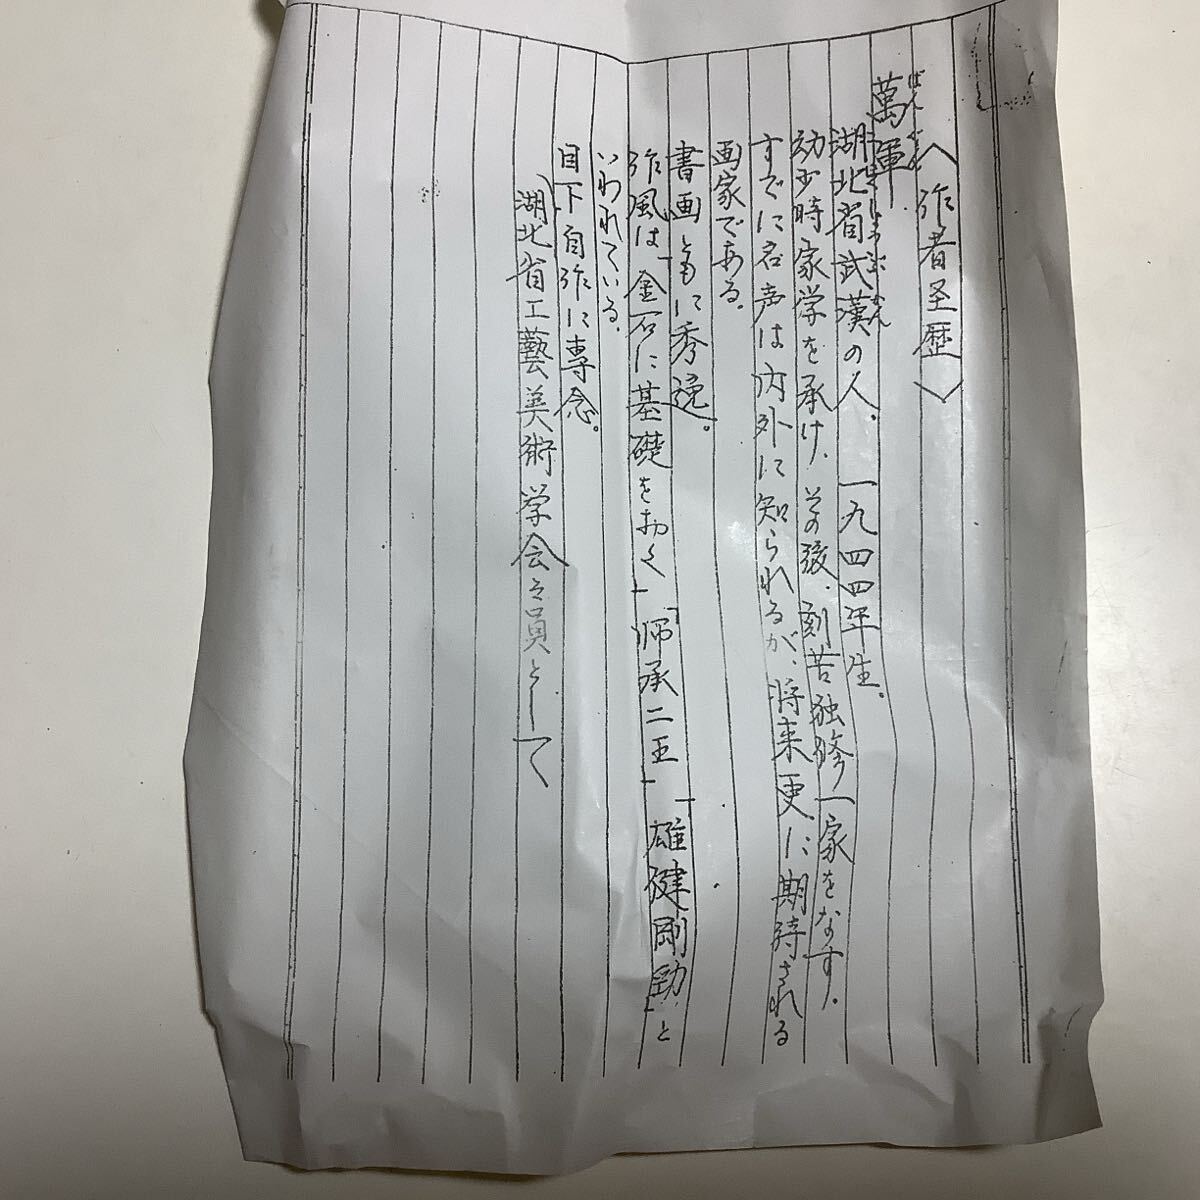 〈作者圣歴〉
萬軍
ばんぐん
湖北省武漢の人。一九四四年生。
こほくしょうぶかん
幼少時家学を承け、その後、刻苦独修一家をなす。
すでに名声は内外に知られるが、将来更に期待される
画家である。
書画ともに秀逸。
作風は「金石に基礎をおく」「师承二王」「雄健剛勁」と
いわれている。
目下自作に専念。
(湖北省工藝美術学会々員として